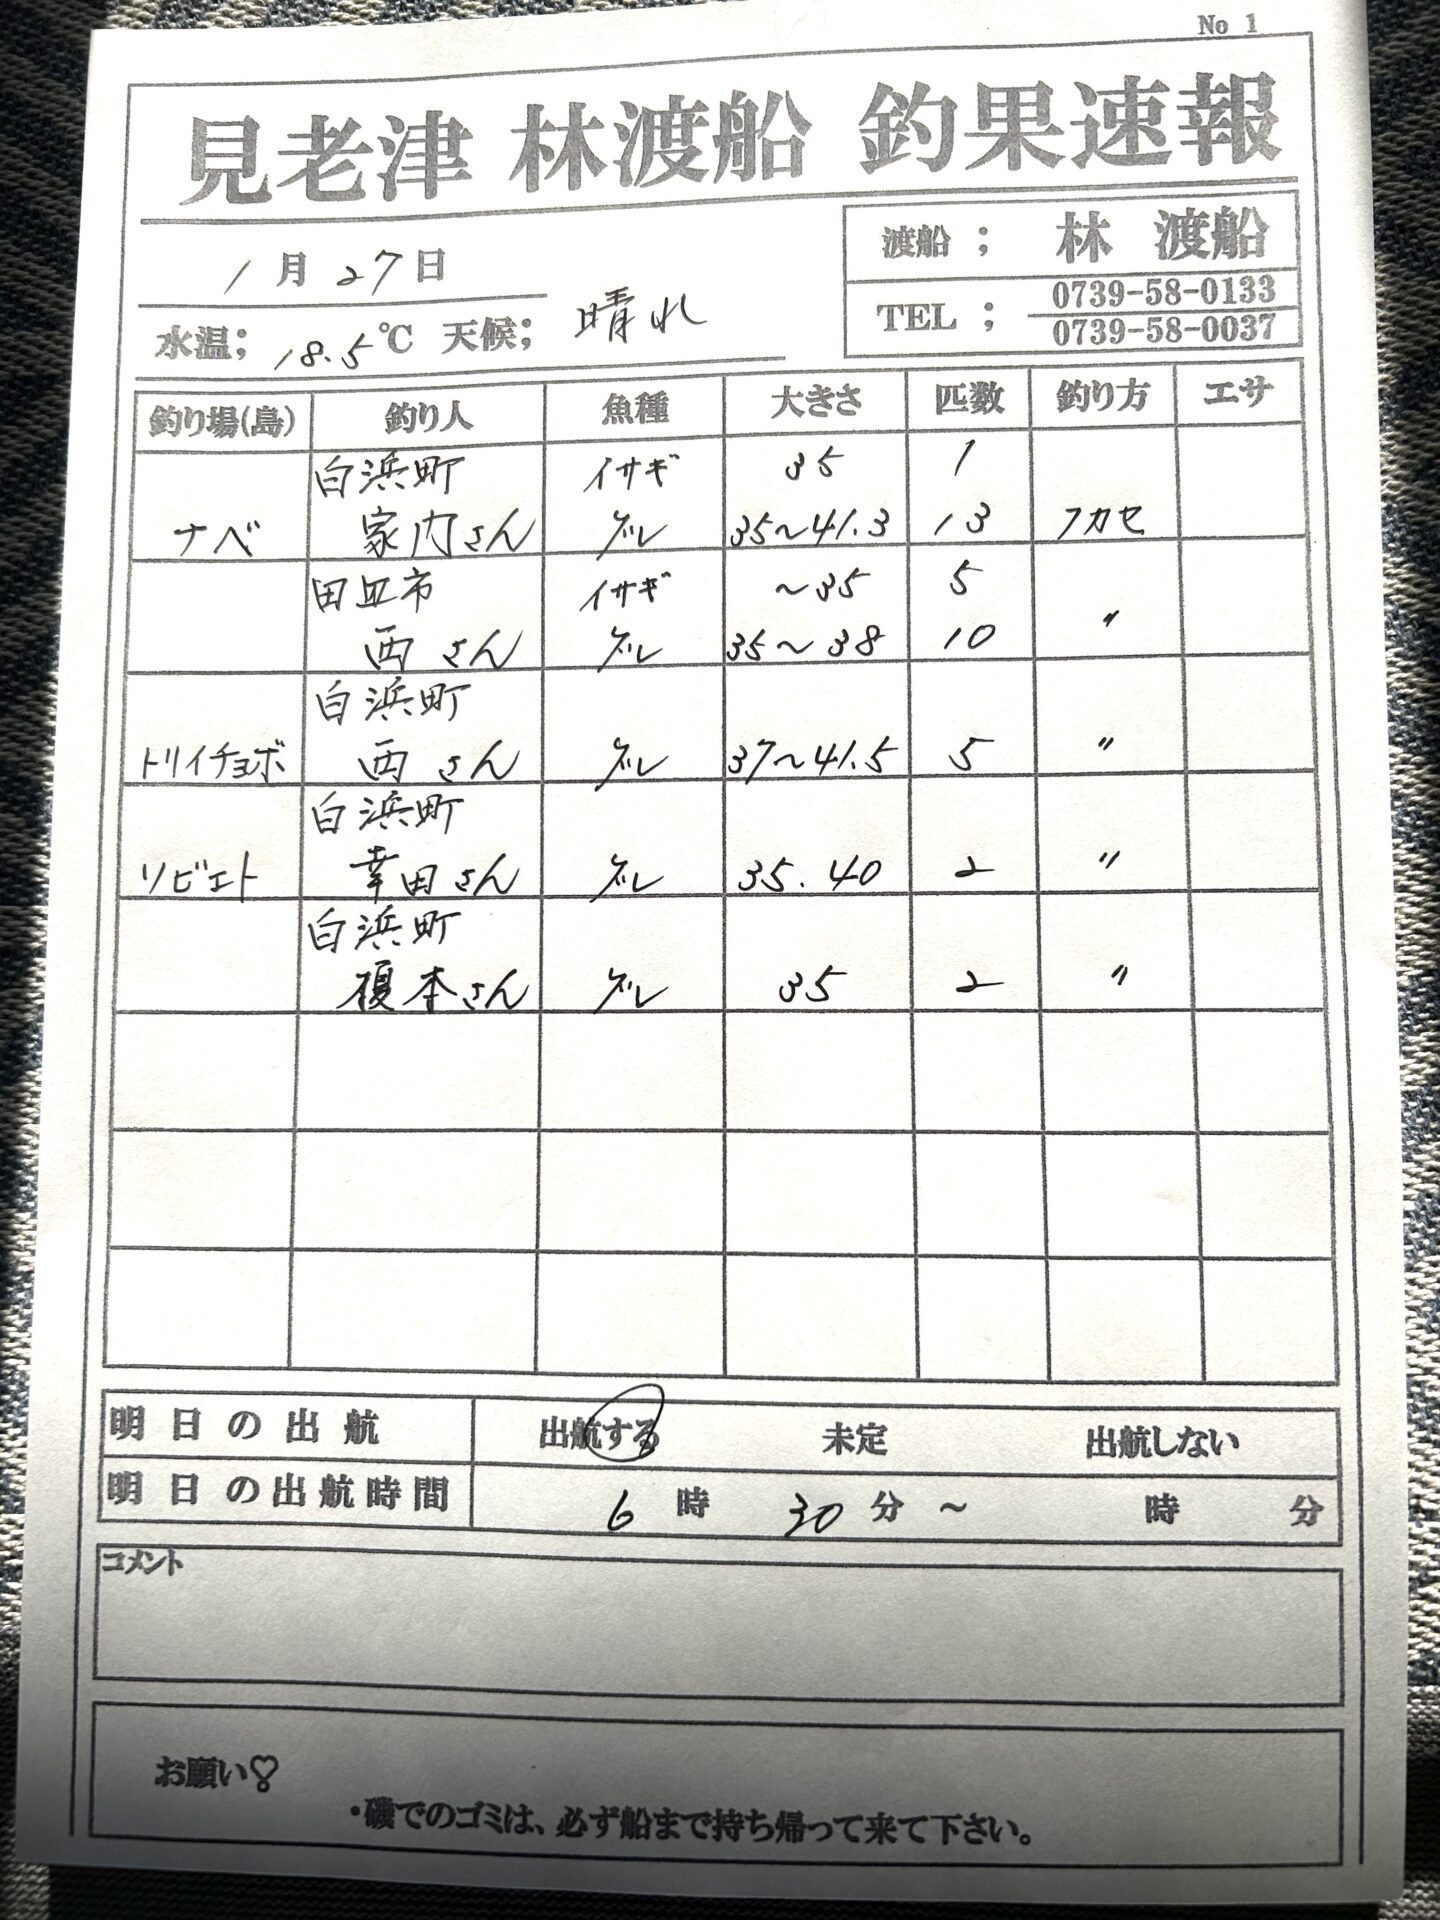 No 1
見老津 林渡船 釣果速報
1月27日
渡船 ; 林 渡船
水温; 18.5℃ 天候; 晴れ
TEL ; 0739-58-0133
0739-58-0037
釣り場(島) 釣り人 魚種 大きさ 匹数 釣り方 エサ
白浜町 イサギ 35 1
ナベ 家内さん グレ 35~41.3 13 フカセ
田辺市 イサギ ~35 5
西さん グレ 35~38 10 〃
白浜町
トリイチョボ 西さん グレ 37~41.5 5 〃
白浜町
ソビエト 幸田さん グレ 35.40 2 〃
白浜町
榎本さん グレ 35 2 〃
明日の出航 出航する 未定 出航しない
明日の出航時間 6時30分~ 時 分
コメント
お願い♡
・磯でのゴミは、必ず船まで持ち帰って来て下さい。